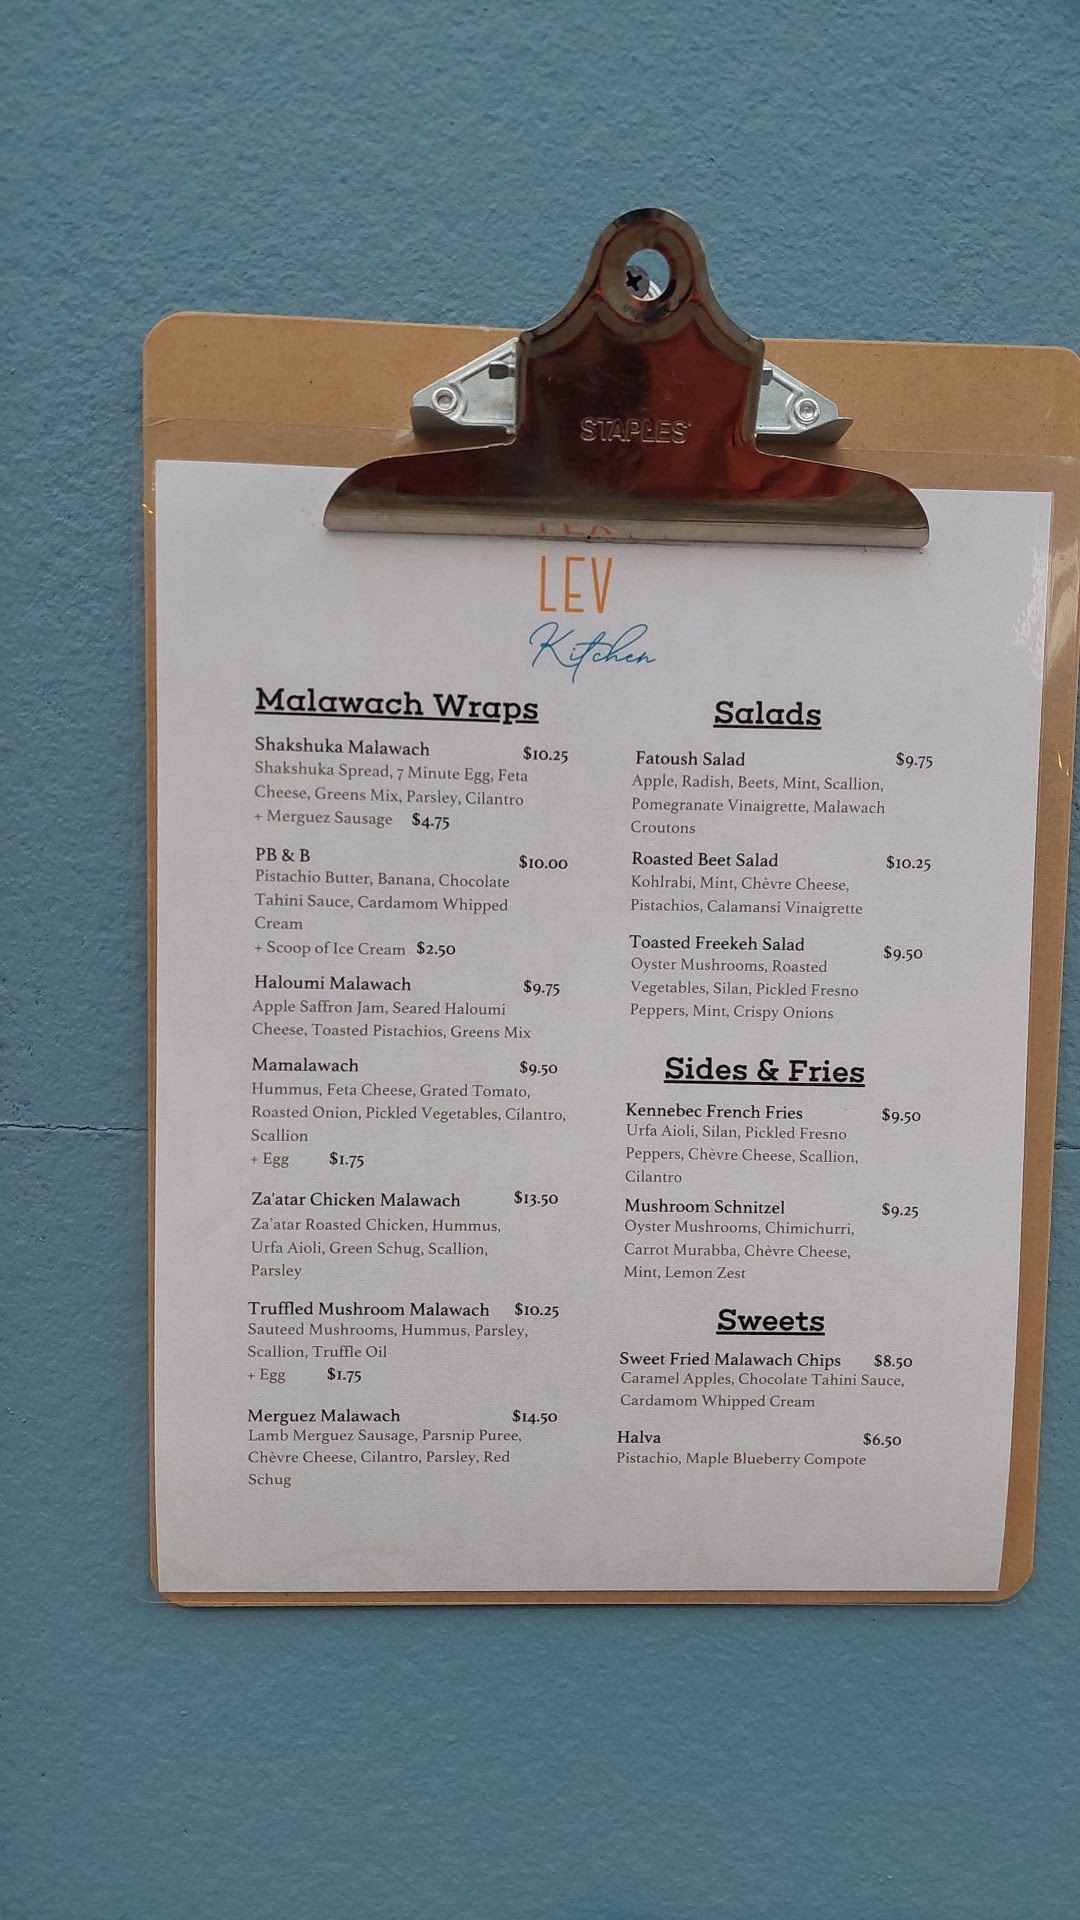 STAPLES
LEV
Kitchen
Malawach Wraps
Shakshuka Malawach $10.25
Shakshuka Spread, 7 Minute Egg, Feta
Cheese, Greens Mix, Parsley, Cilantro
+ Merguez Sausage $4.75
PB & B $10.00
Pistachio Butter, Banana, Chocolate
Tahini Sauce, Cardamom Whipped
Cream
+ Scoop of Ice Cream $2.50
Haloumi Malawach $9.75
Apple Saffron Jam, Seared Haloumi
Cheese, Toasted Pistachios, Greens Mix
Mamalawach $9.50
Hummus, Feta Cheese, Grated Tomato,
Roasted Onion, Pickled Vegetables, Cilantro,
Scallion
+ Egg $1.75
Za'atar Chicken Malawach $13.50
Za'atar Roasted Chicken, Hummus,
Urfa Aioli, Green Schug, Scallion,
Parsley
Truffled Mushroom Malawach $10.25
Sauteed Mushrooms, Hummus, Parsley,
Scallion, Truffle Oil
+ Egg $1.75
Merguez Malawach $14.50
Lamb Merguez Sausage, Parsnip Puree,
Chèvre Cheese, Cilantro, Parsley, Red
Schug
Salads
Fatoush Salad $9.75
Apple, Radish, Beets, Mint, Scallion,
Pomegranate Vinaigrette, Malawach
Croutons
Roasted Beet Salad $10.25
Kohlrabi, Mint, Chèvre Cheese,
Pistachios, Calamansi Vinaigrette
Toasted Freekeh Salad $9.50
Oyster Mushrooms, Roasted
Vegetables, Silan, Pickled Fresno
Peppers, Mint, Crispy Onions
Sides & Fries
Kennebec French Fries $9.50
Urfa Aioli, Silan, Pickled Fresno
Peppers, Chèvre Cheese, Scallion,
Cilantro
Mushroom Schnitzel $9.25
Oyster Mushrooms, Chimichurri,
Carrot Murabba, Chèvre Cheese,
Mint, Lemon Zest
Sweets
Sweet Fried Malawach Chips $8.50
Caramel Apples, Chocolate Tahini Sauce,
Cardamom Whipped Cream
Halva $6.50
Pistachio, Maple Blueberry Compote